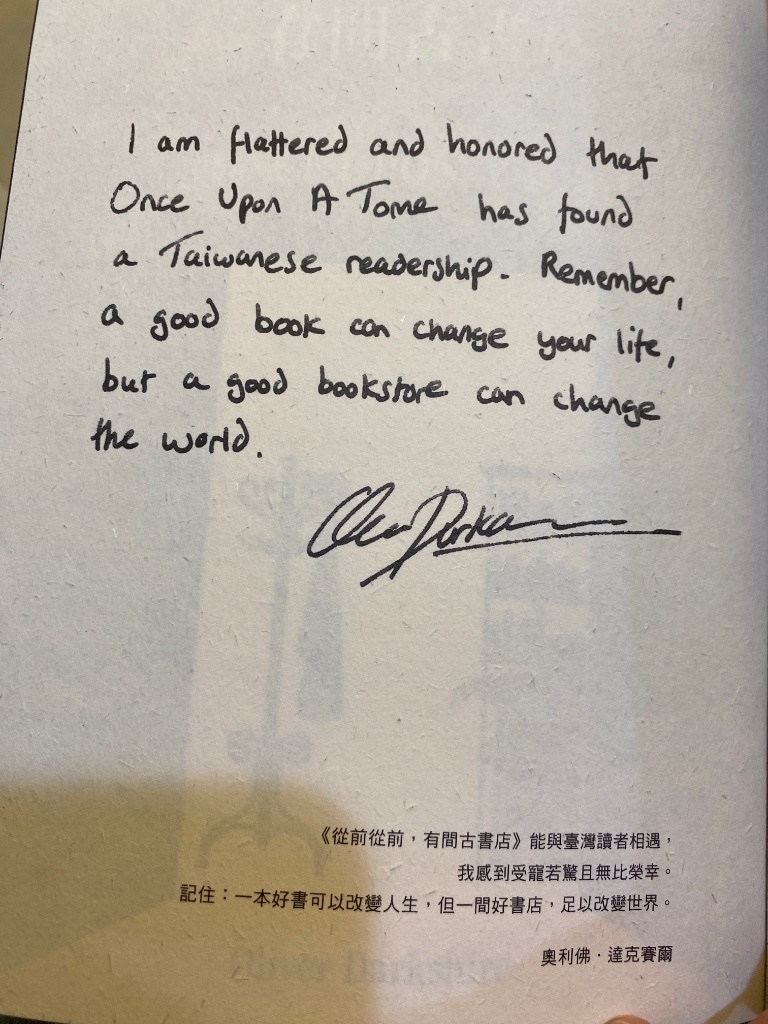 I am flattered and honored that
Once Upon A Tome has found
a Taiwanese readership. Remember,
a good book can change your life,
but a good bookstore can change
the world.
《從前從前，有間古書店》能與臺灣讀者相遇，
我感到受寵若驚且無比榮幸。
記住：一本好書可以改變人生，但一間好書店，足以改變世界。
奧利佛·達克賽爾